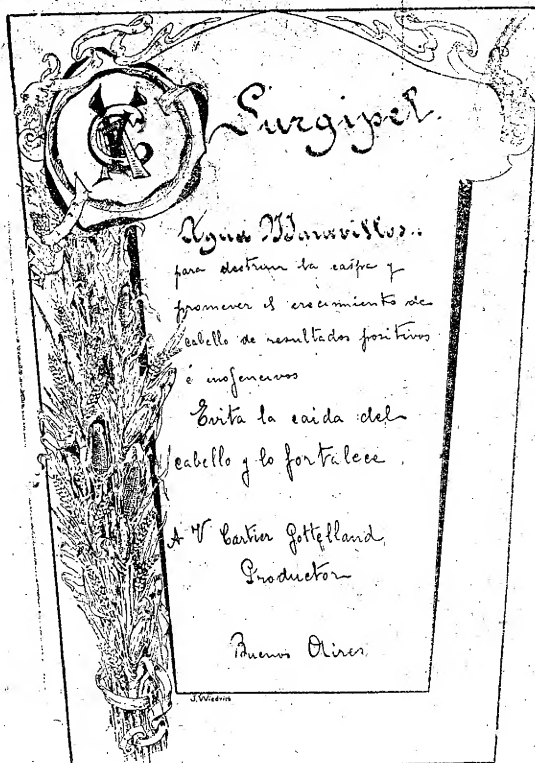 Surgipel.
Agua Maravillosa
para destruir la caspa y
promover el crecimiento de
cabello de resultados positivos
é inofencivos
Evita la caida del
cabello y lo fortalece.
A V Cartier Gottelland,
Productor
Buenos Aires